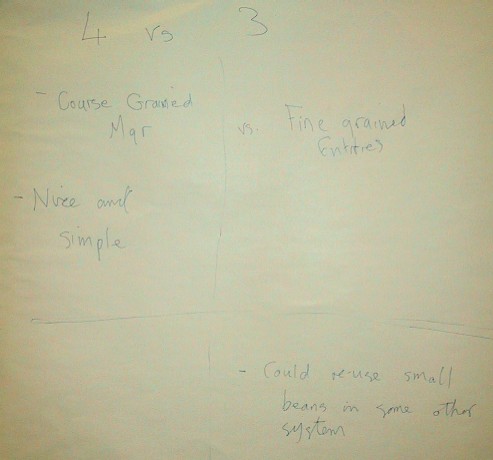 4 vs 3
- Course Grained
Mgr
vs. Fine grained
Entities
- Nice and
simple
- Could re-use small
beans in some other
system